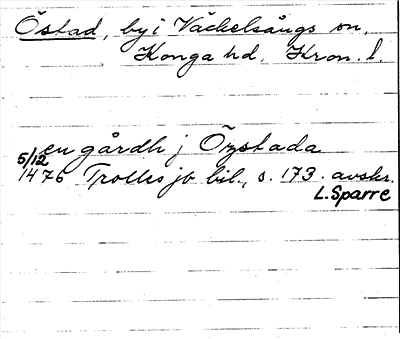 Östad, by i Väckelsångs sn,
Konga hd, Kron. l.
en gårdh j Öystada
5/12
1476 Trolles jb bil., s. 173. avskr.
L. Sparre